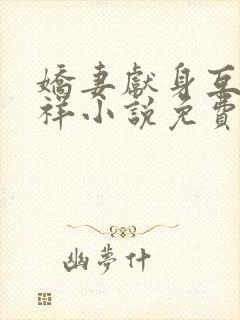 嬌妻獻身互
祥小說免費
幽夢什